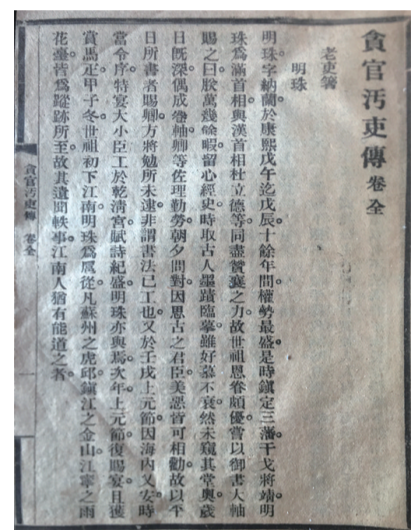 貪官汚吏傳 卷全
老吏撰
明珠
明珠字納蘭於康熙戊午迄戊辰十餘年間權勢最盛是時鎮定三藩干戈將靖明
珠爲滿首相與漢首相杜立德等同盡贊襄之力故世祖恩眷頗優嘗以御書大軸
賜之曰朕萬幾餘暇留心經史時取古人墨蹟臨摹雖好慕不衰然未窺其堂奧歲
日旣深偶成卷軸卿等佐理勤勞朝夕問對因思古之君臣美惡皆可相勸故以平
日所書者賜卿方將勉所未逮非謂書法已工也又於壬戌上元節因海内又安時
當令序特宴大小臣工於乾淸宮賦詩紀盛明珠亦與焉次年上元節復賜宴且獲
賞馬疋甲子冬世祖初下江南明珠爲扈從凡蘇州之虎邱鎮江之金山江寧之雨
花臺皆爲蹤跡所至故其遺聞軼事江南人猶有能道之者
貪官汚吏傳 卷全